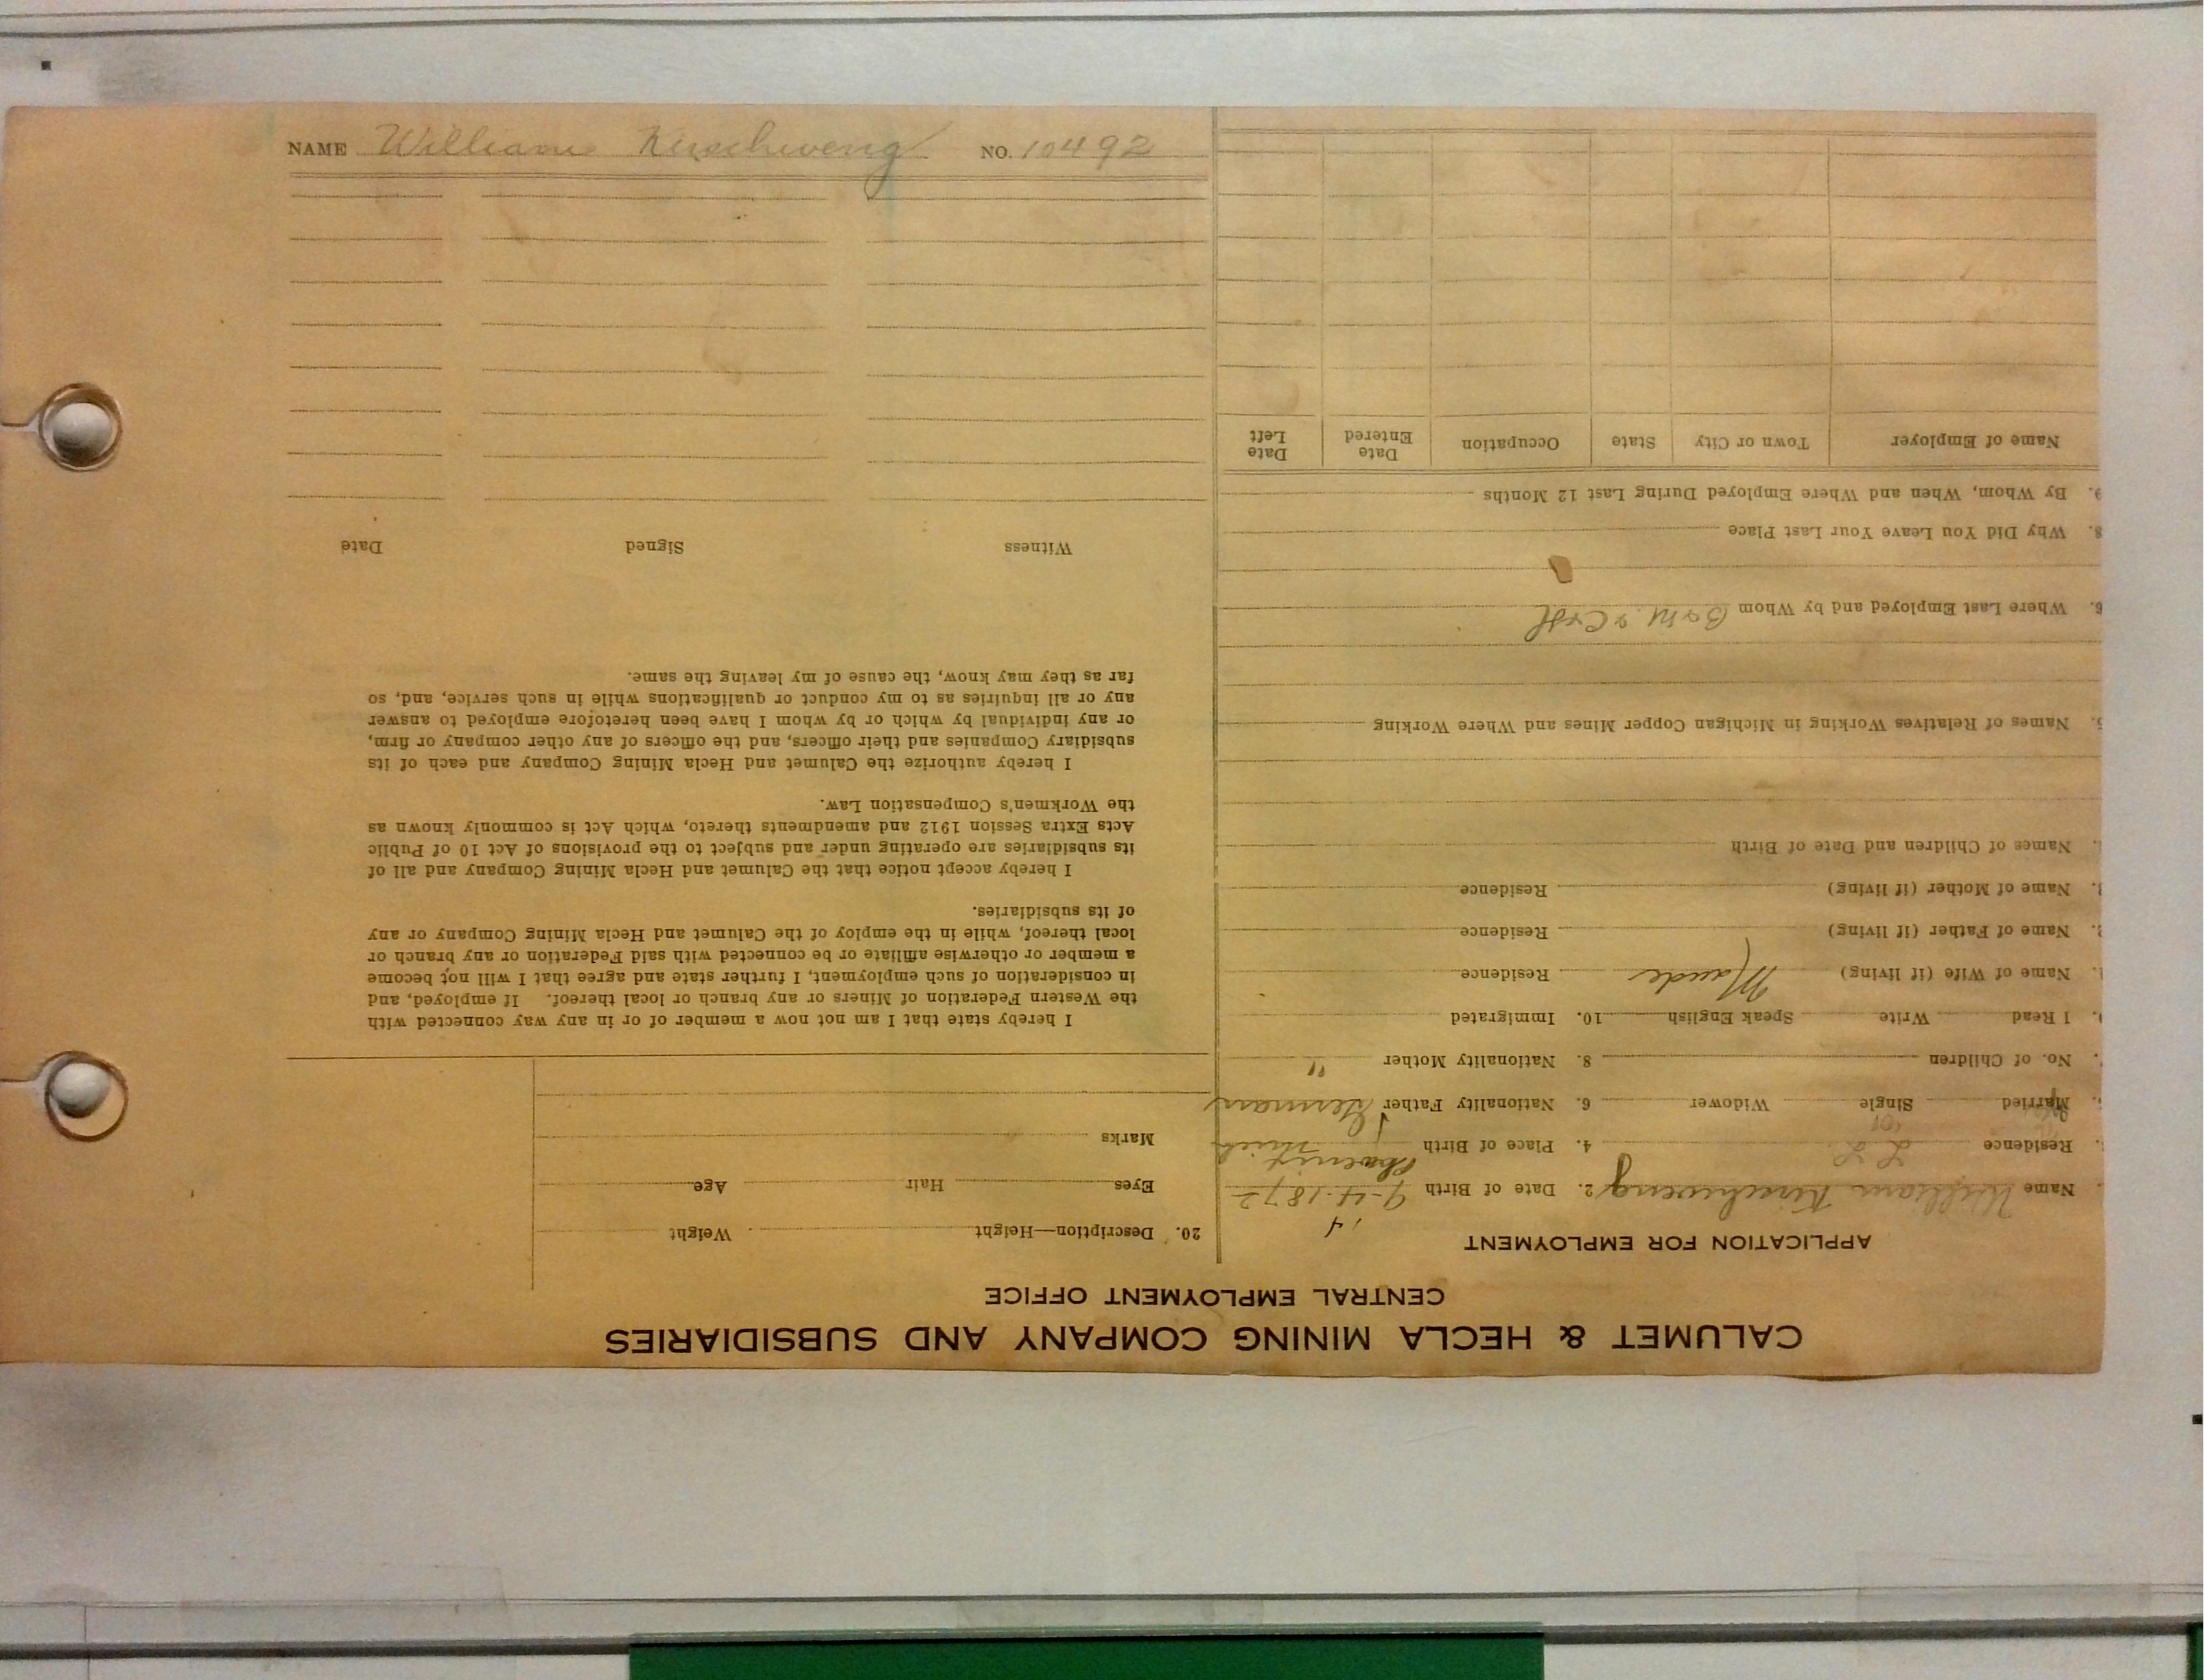 NAME William Kirschweng NO. 10492
CALUMET & HECLA MINING COMPANY AND SUBSIDIARIES
CENTRAL EMPLOYMENT OFFICE
APPLICATION FOR EMPLOYMENT
Name William Kirschweng 2. Date of Birth 9-4-1872
Residence L L 4. Place of Birth Phoenix Mich
Married Single Widower 6. Nationality Father German
No. of Children 8. Nationality Mother "
I Read Write Speak English 10. Immigrated
Name of Wife (if living) Maude Residence
Name of Father (if living) Residence
Name of Mother (if living) Residence
Names of Children and Date of Birth
Names of Relatives Working in Michigan Copper Mines and Where Working
6. Where Last Employed and by Whom & C&H
8. Why Did You Leave Your Last Place
9. By Whom, When and Where Employed During Last 12 Months
Name of Employer Town or City State Occupation Date Entered Date Left
20. Description—Height Weight
Eyes Hair Age
Marks
I hereby state that I am not now a member of or in any way connected with
the Western Federation of Miners or any branch or local thereof. If employed, and
in consideration of such employment, I further state and agree that I will not become
a member or otherwise affiliate or be connected with said Federation or any branch or
local thereof, while in the employ of the Calumet and Hecla Mining Company or any
of its subsidiaries.
I hereby accept notice that the Calumet and Hecla Mining Company and all of
its subsidiaries are operating under and subject to the provisions of Act 10 of Public
Acts Extra Session 1912 and amendments thereto, which Act is commonly known as
the Workmen's Compensation Law.
I hereby authorize the Calumet and Hecla Mining Company and each of its
subsidiary Companies and their officers, and the officers of any other company or firm,
or any individual by which or by whom I have been heretofore employed to answer
any or all inquiries as to my conduct or qualifications while in such service, and, so
far as they may know, the cause of my leaving the same.
Date Signed Witness